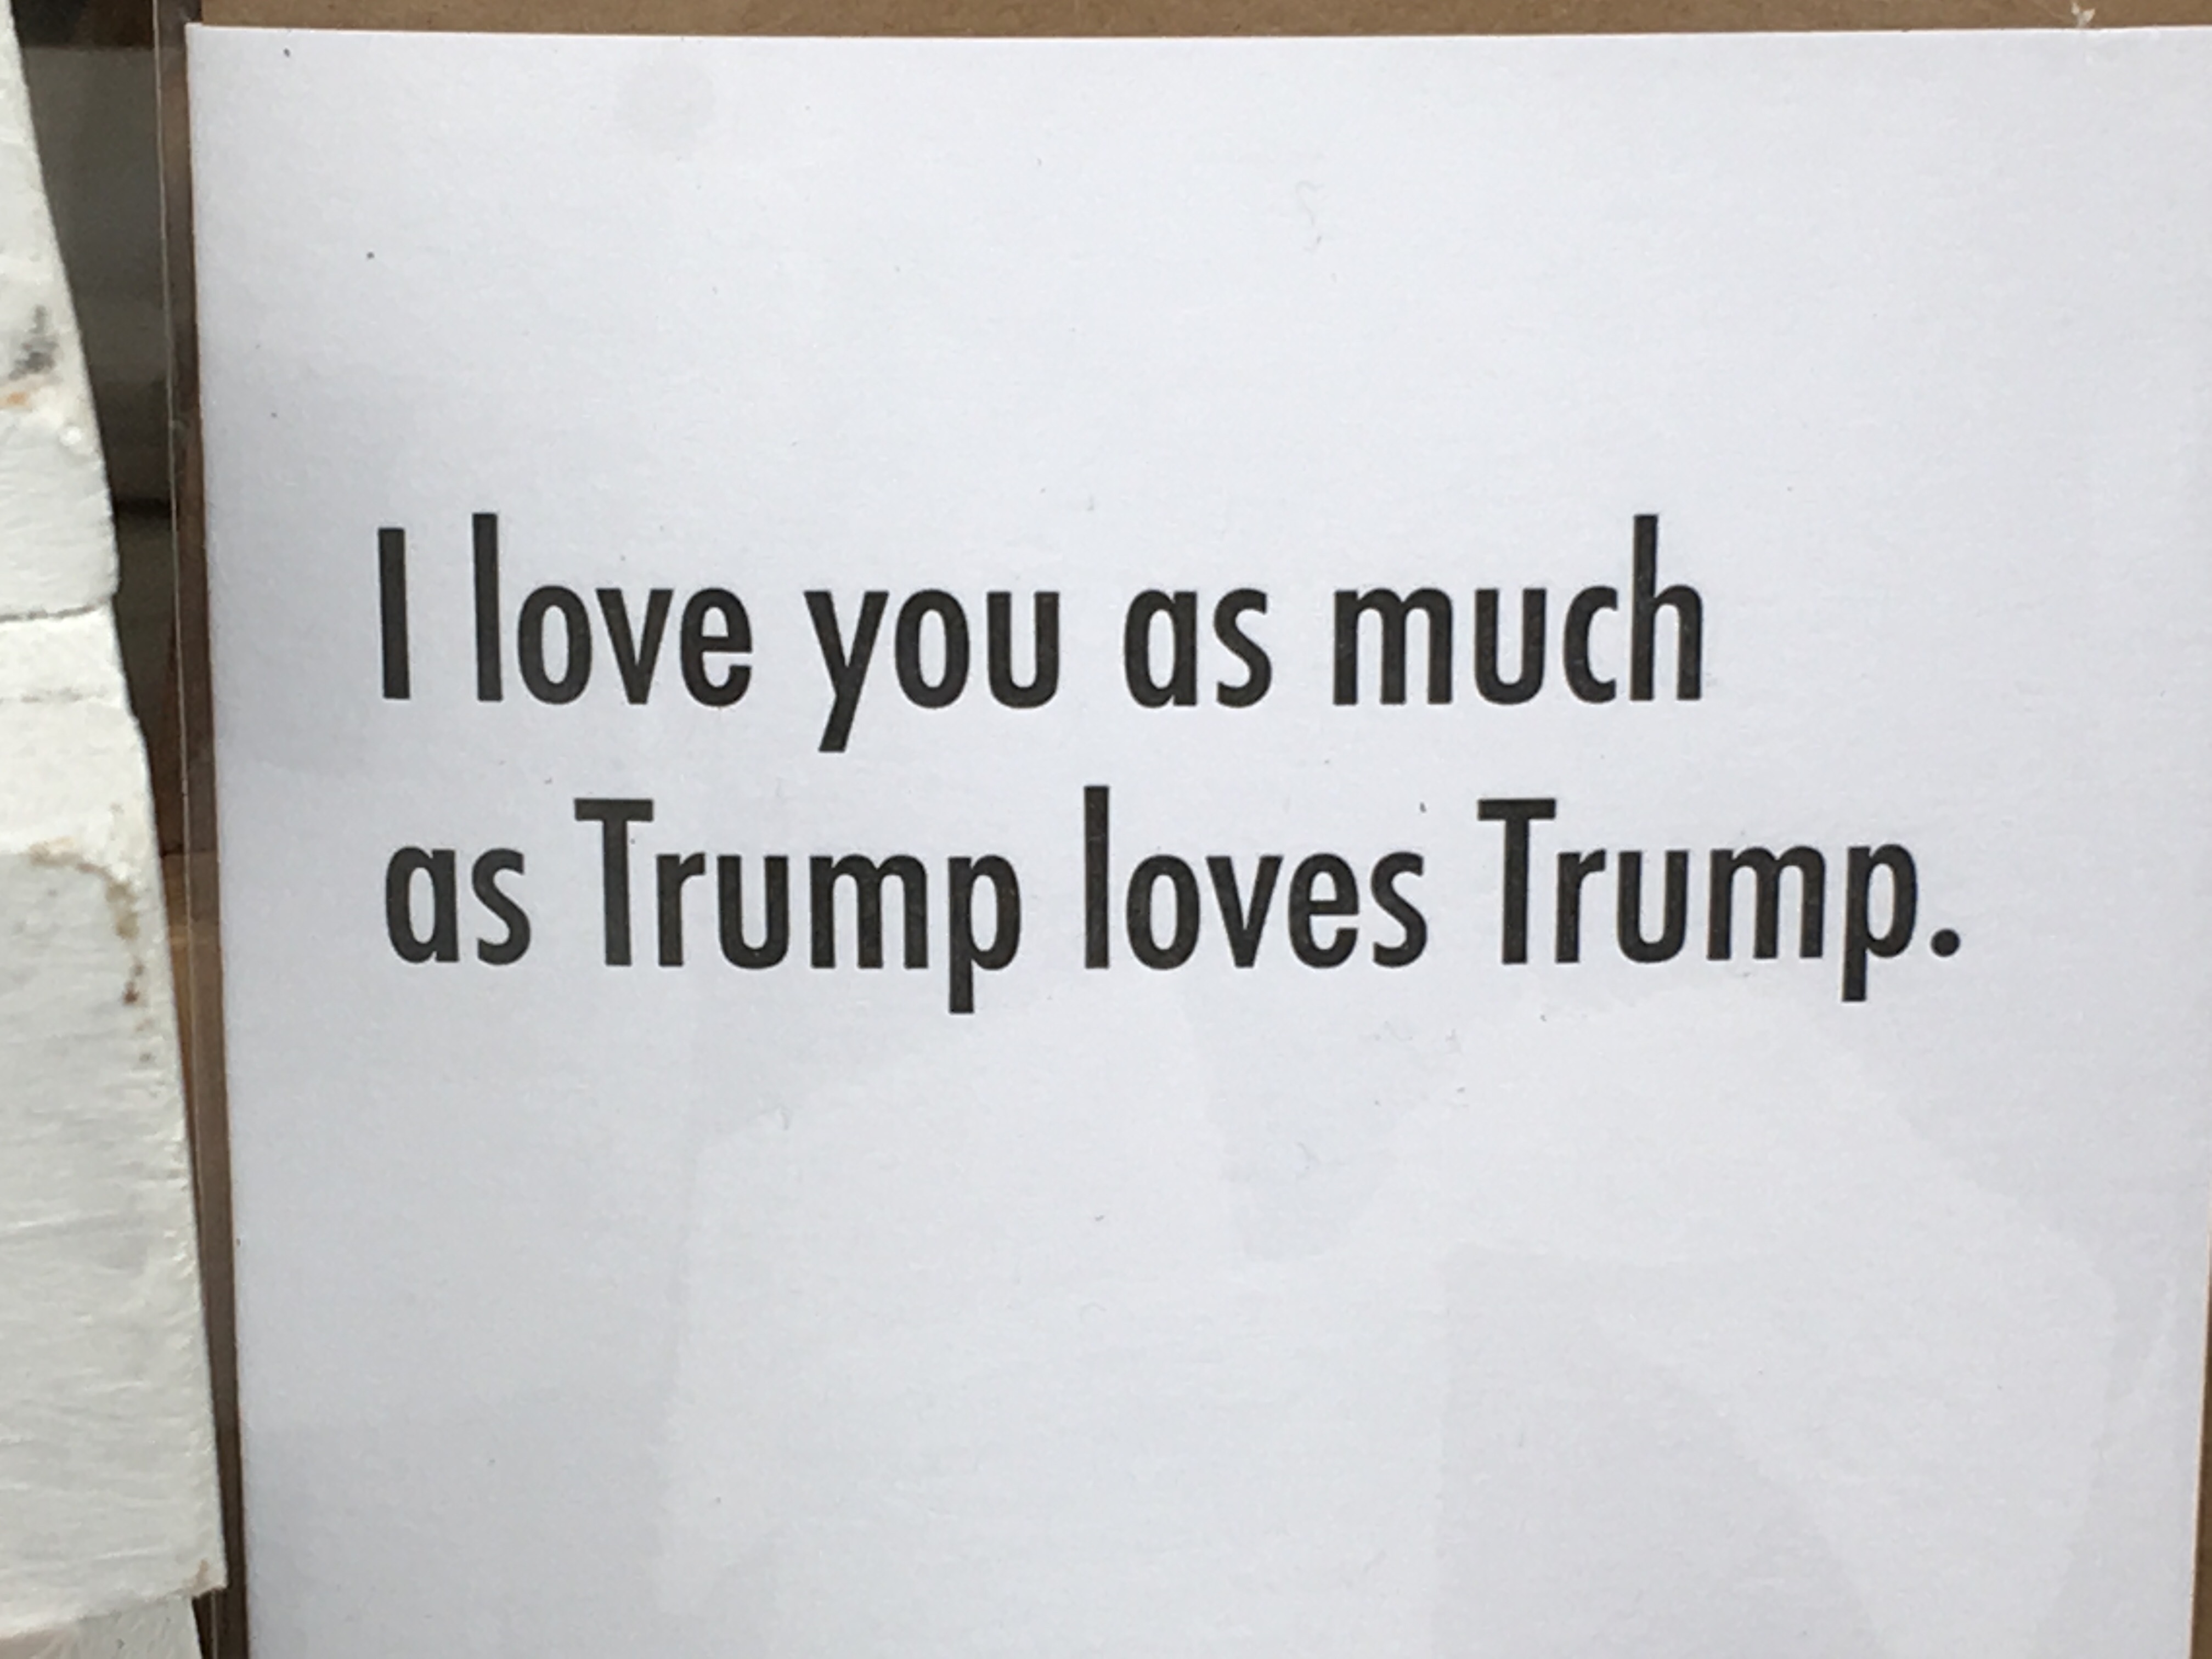 I love you as much
as Trump loves Trump.